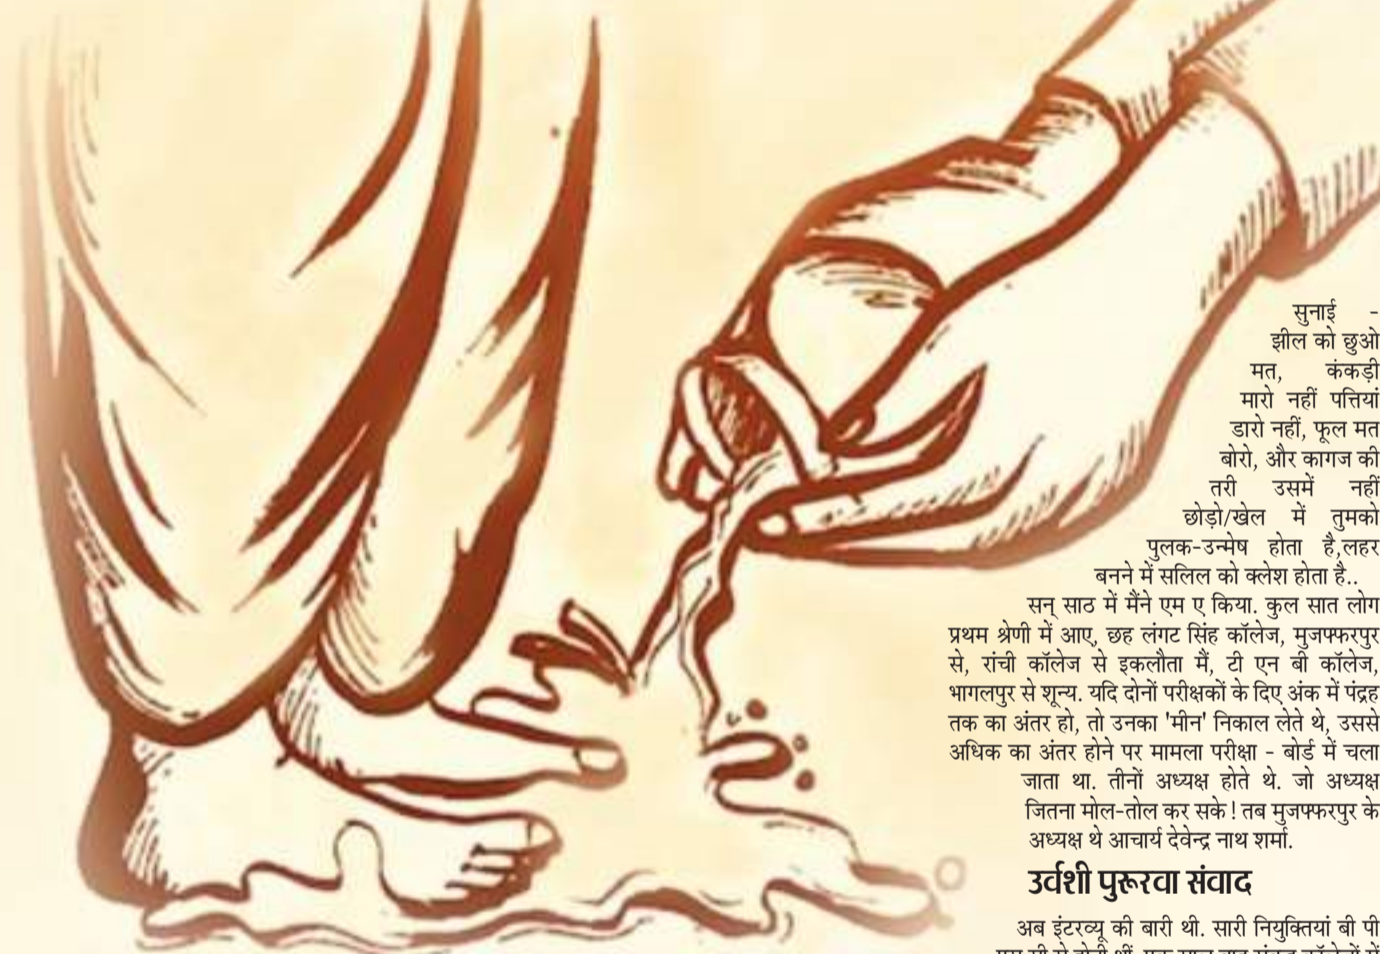 सुनाई -
झील को छुओ
मत, कंकड़ी
मारो नहीं पत्तियां
डारो नहीं, फूल मत
बोरो, और कागज की
तरी उसमें नहीं
छोड़ो/खेल में तुमको
पुलक-उन्मेष होता है,लहर
बनने में सलिल को क्लेश होता है..
सन् साठ में मैंने एम ए किया. कुल सात लोग
प्रथम श्रेणी में आए, छह लंगट सिंह कॉलेज, मुजफ्फरपुर
से, रांची कॉलेज से इकलौता मैं, टी एन बी कॉलेज,
भागलपुर से शून्य. यदि दोनों परीक्षकों के दिए अंक में पंद्रह
तक का अंतर हो, तो उनका 'मीन' निकाल लेते थे, उससे
अधिक का अंतर होने पर मामला परीक्षा - बोर्ड में चला
जाता था. तीनों अध्यक्ष होते थे. जो अध्यक्ष
जितना मोल-तोल कर सके ! तब मुजफ्फरपुर के
अध्यक्ष थे आचार्य देवेन्द्र नाथ शर्मा.
उर्वशी पुरूरवा संवाद
अब इंटरव्यू की बारी थी. सारी नियुक्तियां बी पी